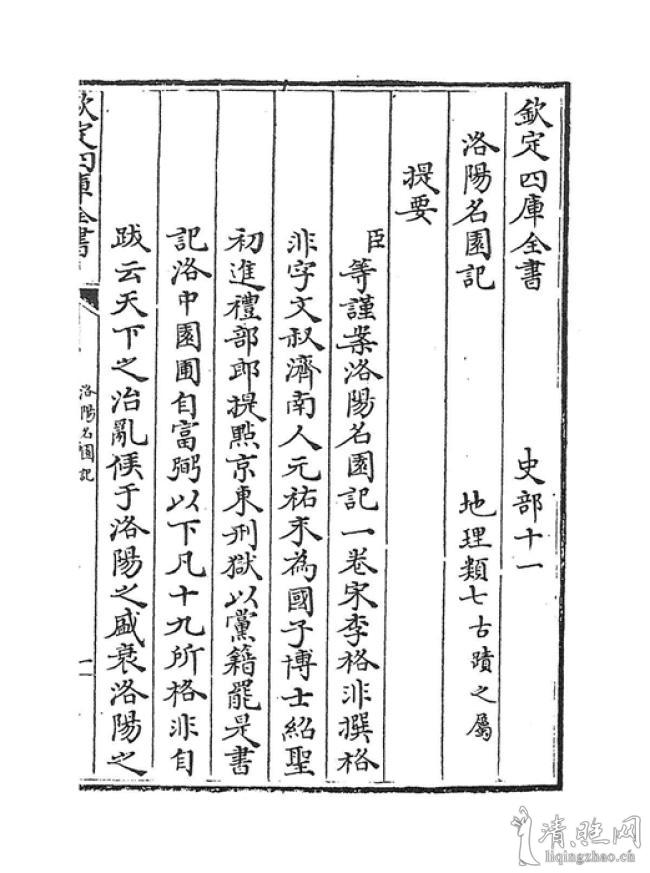 欽定四庫全書 史部十一
洛陽名園記 地理類七古蹟之屬
提要
臣等謹案洛陽名園記一卷宋李格非撰格
非字文叔濟南人元祐末為國子博士紹聖
初進禮部郎提點京東刑獄以黨籍罷是書
記洛中園圃自富弼以下凡十九所格非自
跋云天下之治亂候于洛陽之盛衰洛陽之
欽定四庫全書
洛陽名園記
一
清照网
liqingzhao.cn